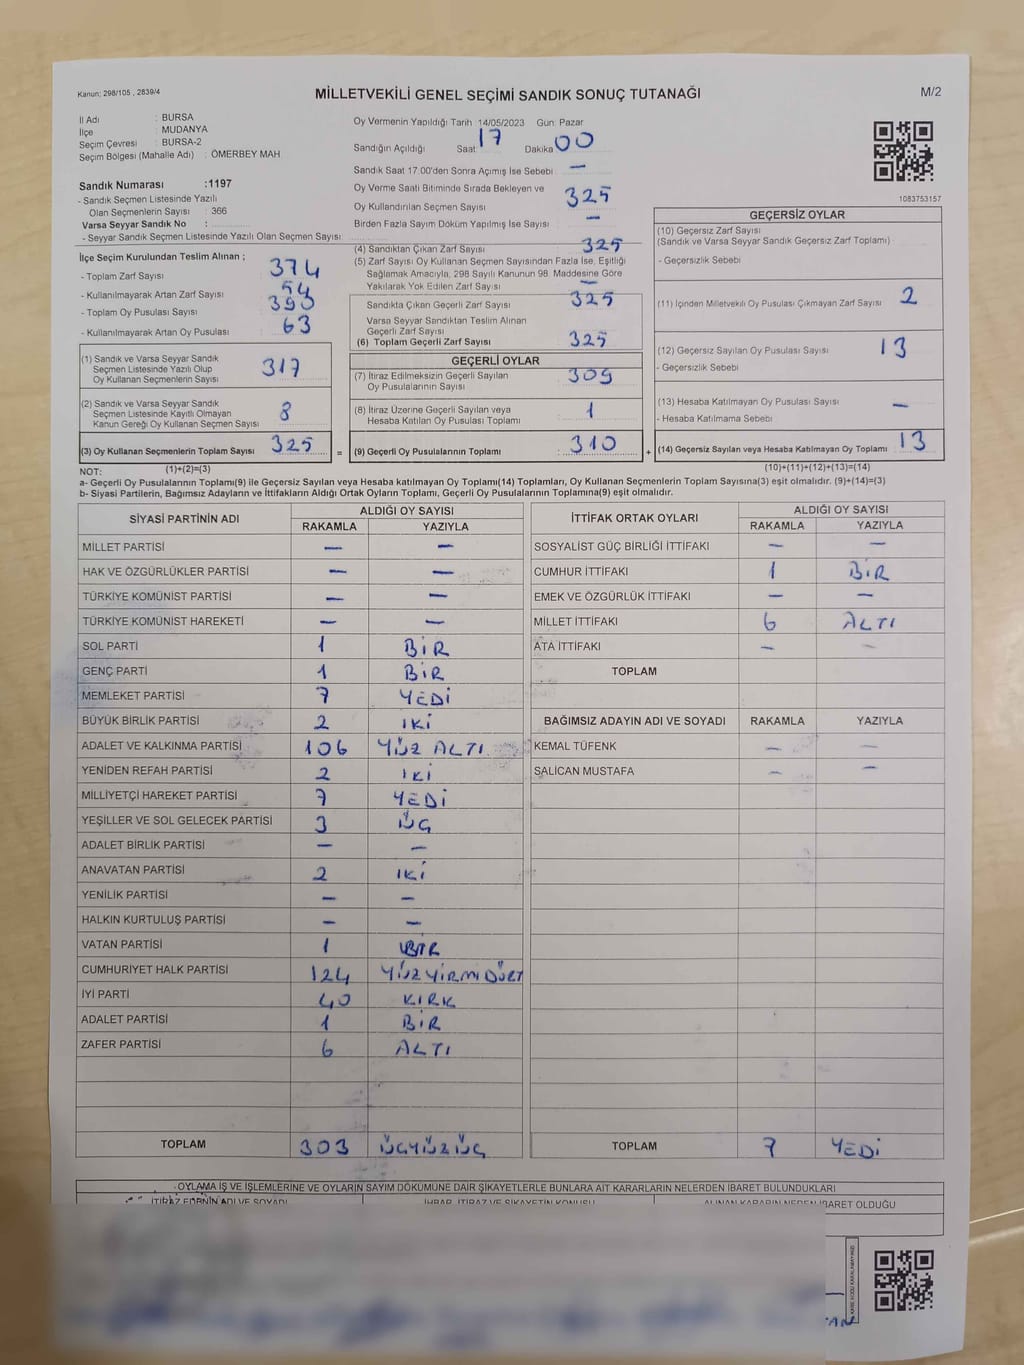 Kanun: 298/105 , 2839/4
MİLLETVEKİLİ GENEL SEÇİMİ SANDIK SONUÇ TUTANAĞI
M/2
İl Adı : BURSA
İlçe : MUDANYA
Seçim Çevresi : BURSA-2
Seçim Bölgesi (Mahalle Adı) : ÖMERBEY MAH
Sandık Numarası :1197
- Sandık Seçmen Listesinde Yazılı
Olan Seçmenlerin Sayısı : 366
Varsa Seyyar Sandık No :
- Seyyar Sandık Seçmen Listesinde Yazılı Olan Seçmen Sayısı:
İlçe Seçim Kurulundan Teslim Alınan ;
- Toplam Zarf Sayısı 374
- Kullanılmayarak Artan Zarf Sayısı 54
- Toplam Oy Pusulası Sayısı 393
- Kullanılmayarak Artan Oy Pusulası 63
(1) Sandık ve Varsa Seyyar Sandık
Seçmen Listesinde Yazılı Olup
Oy Kullanan Seçmenlerin Sayısı 317
(2) Sandık ve Varsa Seyyar Sandık
Seçmen Listesinde Kayıtlı Olmayan
Kanun Gereği Oy Kullanan Seçmen Sayısı 8
(3) Oy Kullanan Seçmenlerin Toplam Sayısı 325
Oy Vermenin Yapıldığı Tarih 14/05/2023 Gün: Pazar
Sandığın Açıldığı Saat 17 Dakika 00
Sandık Saat 17.00'den Sonra Açımış İse Sebebi —
Oy Verme Saati Bitiminde Sırada Bekleyen ve
Oy Kullandırılan Seçmen Sayısı 325
Birden Fazla Sayım Döküm Yapılmış İse Sayısı —
(4) Sandıktan Çıkan Zarf Sayısı 325
(5) Zarf Sayısı Oy Kullanan Seçmen Sayısından Fazla İse, Eşitliği
Sağlamak Amacıyla, 298 Sayılı Kanunun 98. Maddesine Göre
Yakılarak Yok Edilen Zarf Sayısı —
Sandıkta Çıkan Geçerli Zarf Sayısı 325
Varsa Seyyar Sandıktan Teslim Alınan
Geçerli Zarf Sayısı
(6) Toplam Geçerli Zarf Sayısı 325
GEÇERLİ OYLAR
(7) İtiraz Edilmeksizin Geçerli Sayılan
Oy Pusulalarının Sayısı 309
(8) İtiraz Üzerine Geçerli Sayılan veya
Hesaba Katılan Oy Pusulası Toplamı 1
= (9) Geçerli Oy Pusulalarının Toplamı 310
1083753157
GEÇERSİZ OYLAR
(10) Geçersiz Zarf Sayısı
(Sandık ve Varsa Seyyar Sandık Geçersiz Zarf Toplamı)
- Geçersizlik Sebebi
(11) İçinden Milletvekili Oy Pusulası Çıkmayan Zarf Sayısı 2
(12) Geçersiz Sayılan Oy Pusulası Sayısı 13
- Geçersizlik Sebebi
(13) Hesaba Katılmayan Oy Pusulası Sayısı —
- Hesaba Katılmama Sebebi
+ (14) Geçersiz Sayılan veya Hesaba Katılmayan Oy Toplamı 13
NOT: (1)+(2)=(3)
(10)+(11)+(12)+(13)=(14)
a- Geçerli Oy Pusulalarının Toplamı(9) ile Geçersiz Sayılan veya Hesaba katılmayan Oy Toplamı(14) Toplamları, Oy Kullanan Seçmenlerin Toplam Sayısına(3) eşit olmalıdır. (9)+(14)=(3)
b- Siyasi Partilerin, Bağımsız Adayların ve İttifakların Aldığı Ortak Oyların Toplamı, Geçerli Oy Pusulalarının Toplamına(9) eşit olmalıdır.
SİYASİ PARTİNİN ADI ALDIĞI OY SAYISI
RAKAMLA YAZIYLA
MİLLET PARTİSİ — —
HAK VE ÖZGÜRLÜKLER PARTİSİ — —
TÜRKİYE KOMÜNİST PARTİSİ — —
TÜRKİYE KOMÜNİST HAREKETİ — —
SOL PARTİ 1 BİR
GENÇ PARTİ 1 BİR
MEMLEKET PARTİSİ 7 YEDİ
BÜYÜK BİRLİK PARTİSİ 2 İKİ
ADALET VE KALKINMA PARTİSİ 106 YÜZ ALTI
YENİDEN REFAH PARTİSİ 2 İKİ
MİLLİYETÇİ HAREKET PARTİSİ 7 YEDİ
YEŞİLLER VE SOL GELECEK PARTİSİ 3 ÜÇ
ADALET BİRLİK PARTİSİ — —
ANAVATAN PARTİSİ 2 İKİ
YENİLİK PARTİSİ — —
HALKIN KURTULUŞ PARTİSİ — —
VATAN PARTİSİ 1 BİR
CUMHURİYET HALK PARTİSİ 124 YÜZYİRMİDÖRT
İYİ PARTİ 40 KIRK
ADALET PARTİSİ 1 BİR
ZAFER PARTİSİ 6 ALTI
TOPLAM 303 ÜÇYÜZÜÇ
İTTİFAK ORTAK OYLARI ALDIĞI OY SAYISI
RAKAMLA YAZIYLA
SOSYALİST GÜÇ BİRLİĞİ İTTİFAKI — —
CUMHUR İTTİFAKI 1 BİR
EMEK VE ÖZGÜRLÜK İTTİFAKI — —
MİLLET İTTİFAKI 6 ALTI
ATA İTTİFAKI — —
TOPLAM
BAĞIMSIZ ADAYIN ADI VE SOYADI RAKAMLA YAZIYLA
KEMAL TÜFENK — —
SALİCAN MUSTAFA — —
TOPLAM 7 YEDİ
OYLAMA İŞ VE İŞLEMLERİNE VE OYLARIN SAYIM DÖKÜMÜNE DAİR ŞİKAYETLERLE BUNLARA AİT KARARLARIN NELERDEN İBARET BULUNDUKLARI
İTİRAZ EDENİN ADI VE SOYADI İHBAR, İTİRAZ VE ŞİKAYETİN KONUSU ALINAN KARARIN NEDEN İBARET OLDUĞU